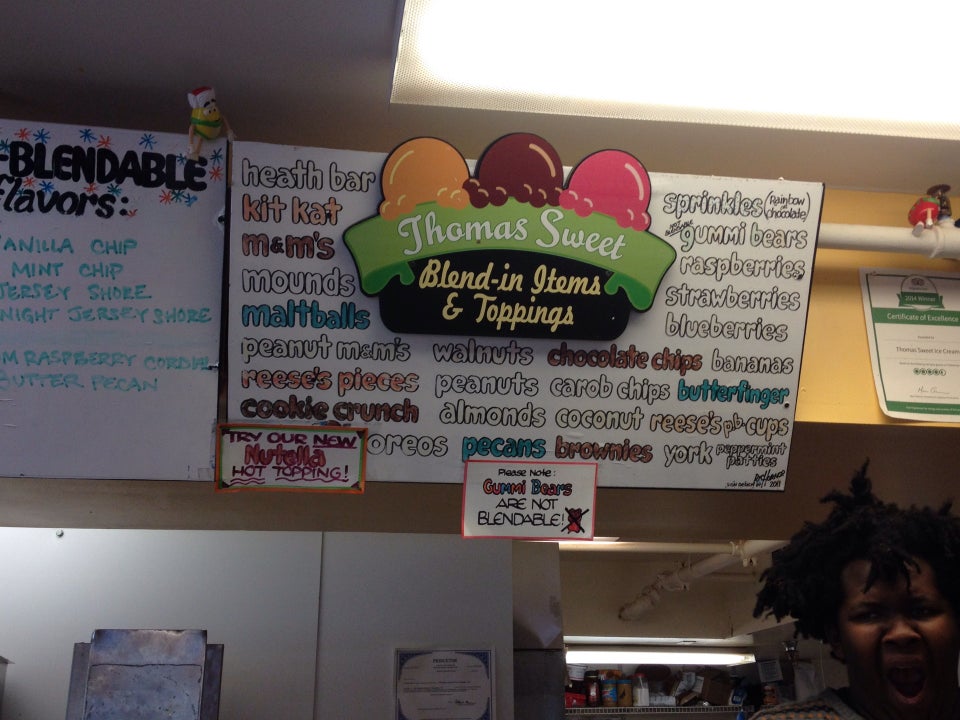 -BLENDABLE
flavors:
VANILLA CHIP
MINT CHIP
JERSEY SHORE
NIGHT JERSEY SHORE
RASPBERRY CORDIAL
BUTTER PECAN
Thomas Sweet
Blend-in Items
& Toppings
heath bar
kit kat
m&m's
mounds
maltballs
peanut m&m's
reese's pieces
cookie crunch
oreos
walnuts
peanuts
almonds
pecans
chocolate chips
carob chips
coconut
brownies
sprinkles (rainbow or chocolate)
gummi bears
raspberries
strawberries
blueberries
bananas
butterfinger
reese's pb cups
york peppermint
patties
2011
TRY OUR NEW
Nutella
HOT TOPPING!
Please Note:
Gummi Bears
ARE NOT
BLENDABLE!
2014 Winner
Certificate of Excellence
Thomas Sweet Ice Cream
PRINCETON